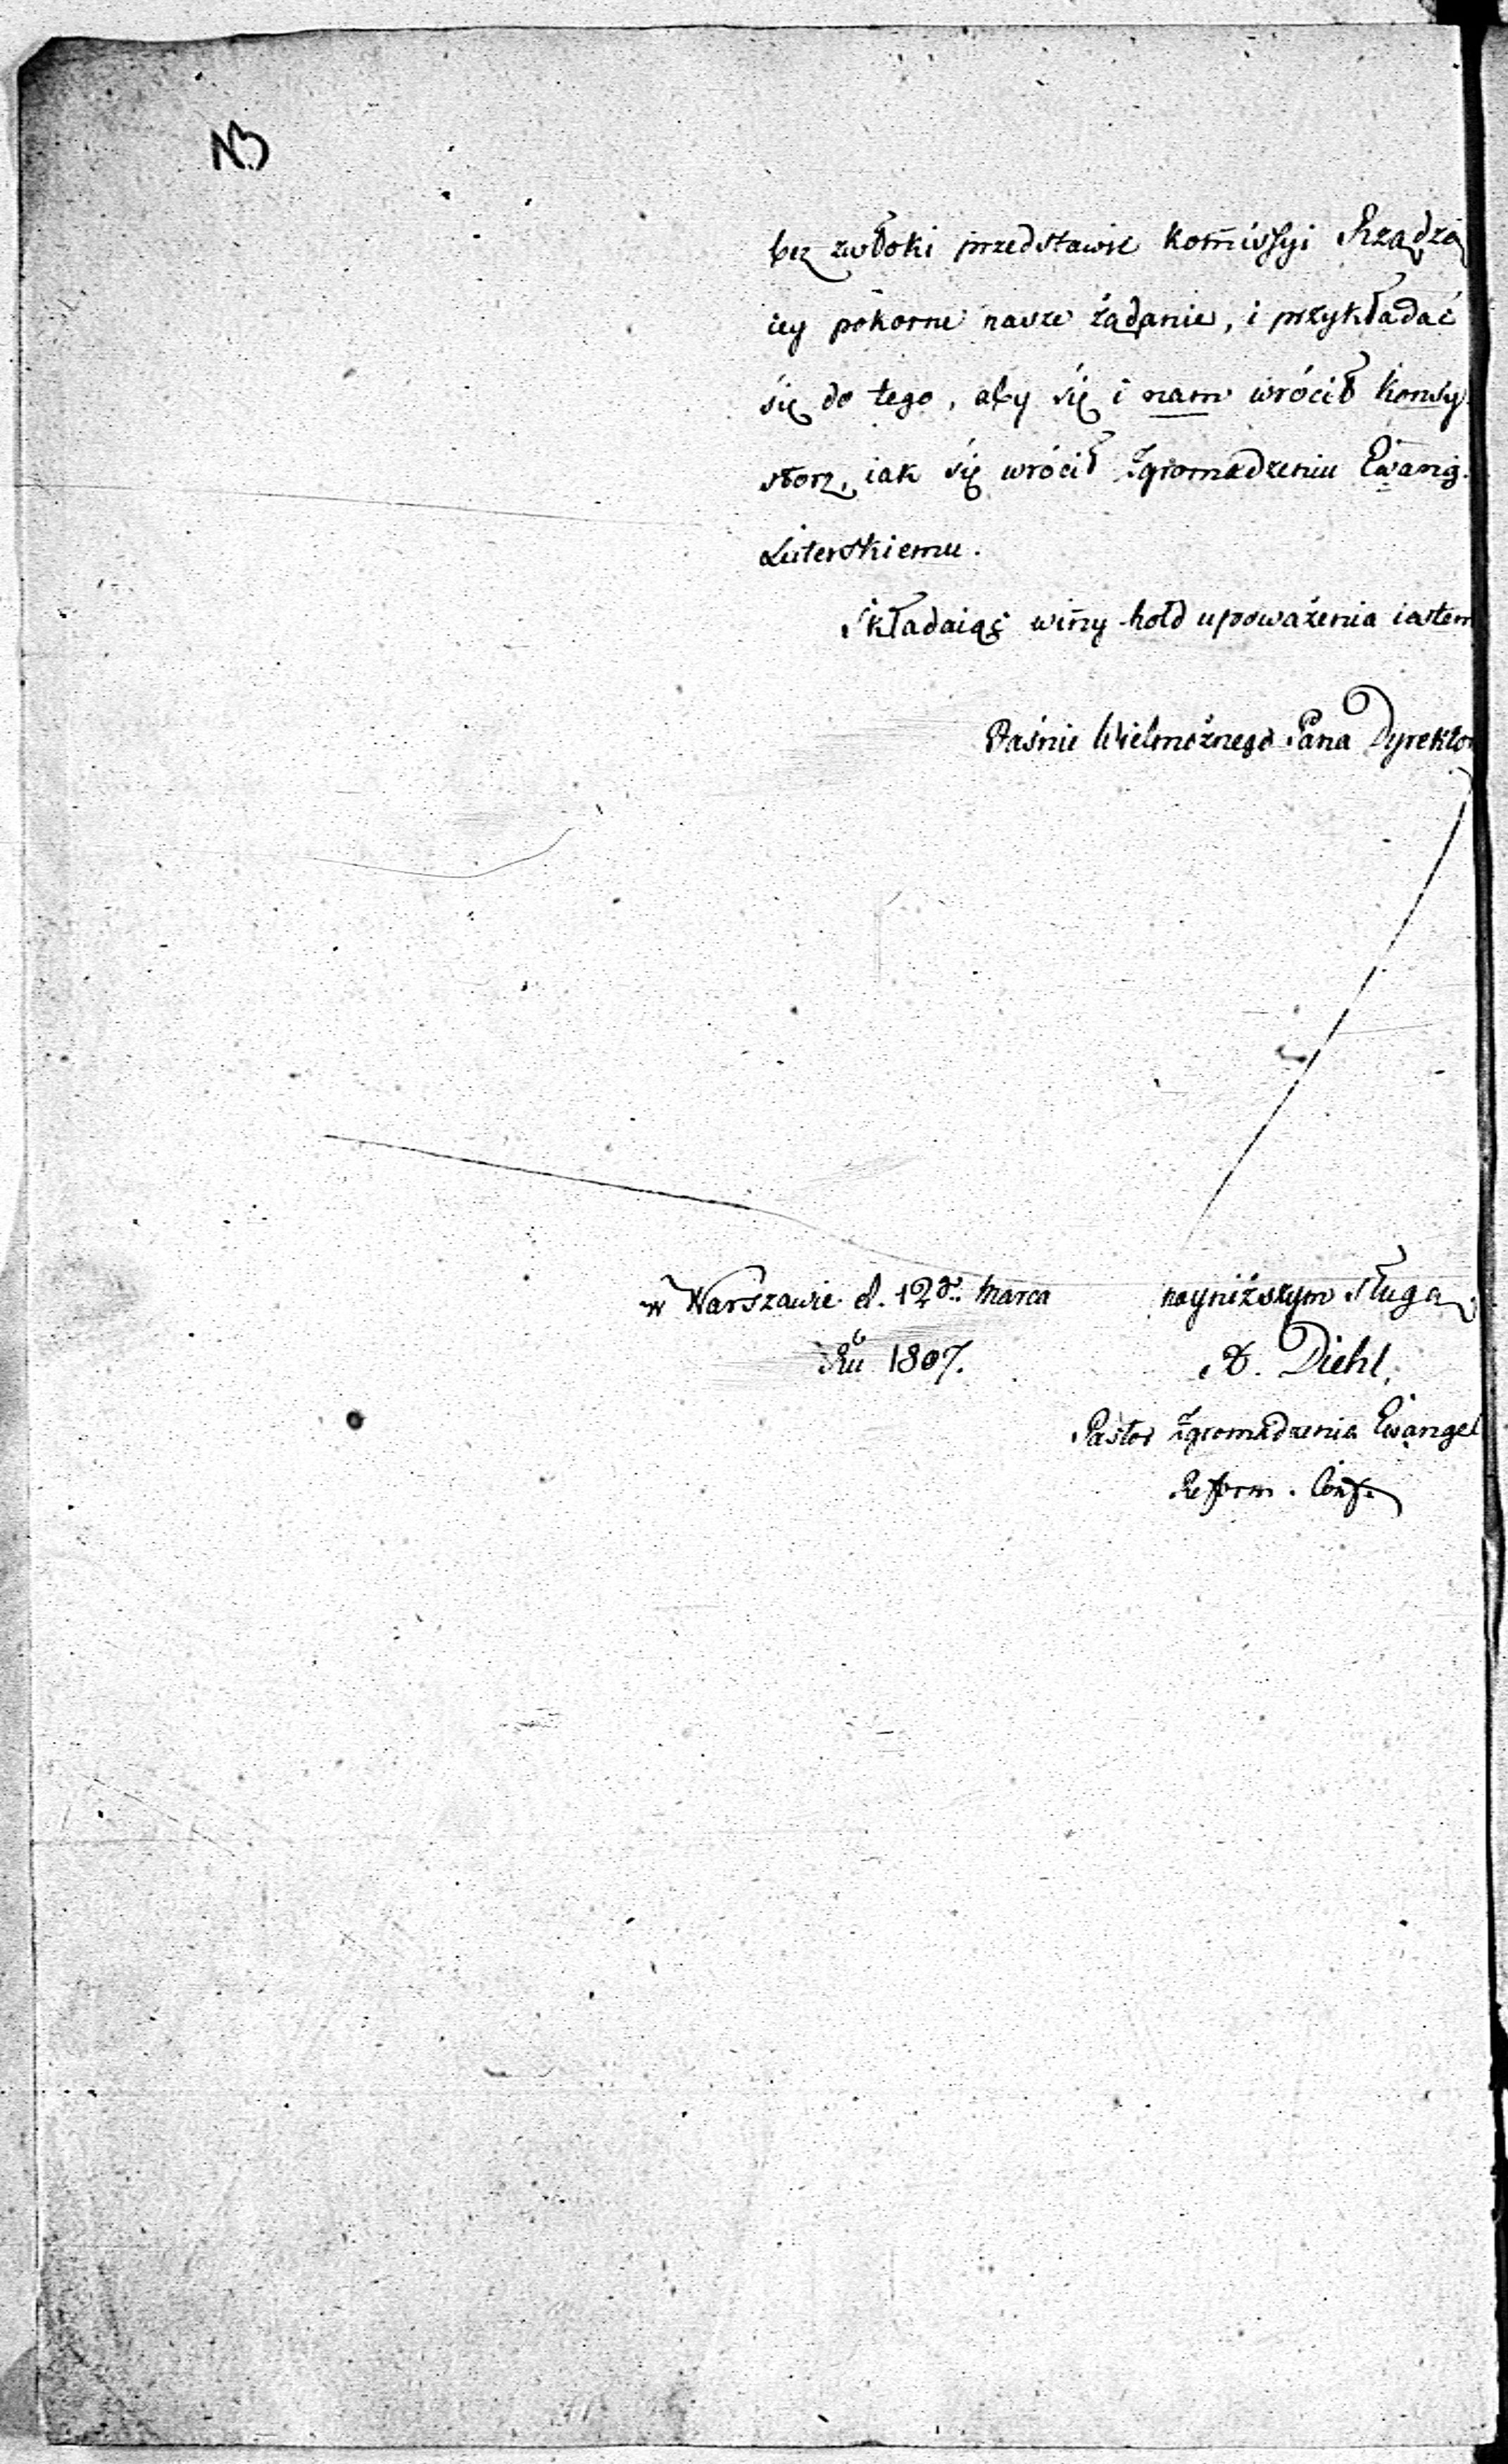 NB
bez zwłoki przedstawić Kom̄issyi Rządzą
cey pokorne nasze żądanie, i przykładać
się do tego, aby się i nam wrócił Konsy
storz, iak się wrócił Zgromadzeniu Ewang.
Luterskiemu.
Składaiąc win̄y hołd upoważenia iestem
Jaśnie Wielmożnego Pana Dyrektor
w Warszawie d. 12go Marca
Ru 1807.
nayniższym sługą
D. Diehl,
Pastor Zgromadzenia Ewangel
Reform. Conf.